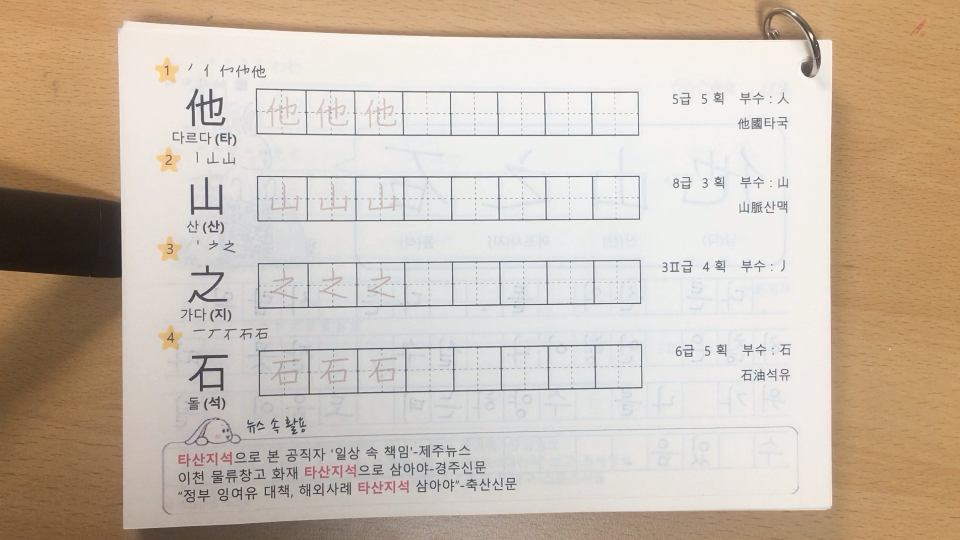 1 丿 亻 仂 仲 他
他 他 他 他 5급 5 획 부수 : 人
他國타국
다르다 (타)
2 丨 凵 山
山 山 山 山 8급 3 획 부수 : 山
山脈산맥
산 (산)
3
之 之 之 之 3Ⅱ급 4 획 부수 : 丿
가다 (지)
4 一 丆 不 石 石
石 石 石 石 6급 5 획 부수 : 石
石油석유
돌 (석)
뉴스 속 활용
타산지석으로 본 공직자 '일상 속 책임'-제주뉴스
이천 물류창고 화재 타산지석으로 삼아야-경주신문
“정부 잉여유 대책, 해외사례 타산지석 삼아야”-축산신문